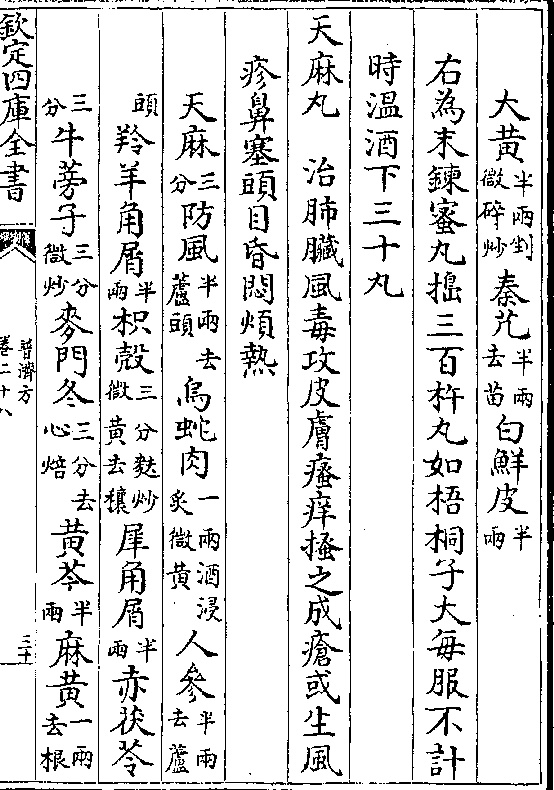 大黄半兩剉微碎炒秦艽半兩去苗白鮮皮半兩
右為末鍊蜜丸搗三百杵丸如梧桐子大每服不計
時溫酒下三十丸
天麻丸　治肺臟風毒攻皮膚瘙痒搔之成瘡或生風
疹鼻塞頭目昏悶煩熱
天麻三分防風半兩去蘆頭烏蛇肉一兩酒浸炙微黄人參半兩去蘆
頭羚羊角屑半兩枳殻三分麩炒微黄去穰犀角屑半兩赤茯苓
三分牛蒡子三分微炒麥門冬三分去心焙黄芩半兩麻黄一兩去根
欽定四庫全書
普濟方
卷二十八
三十